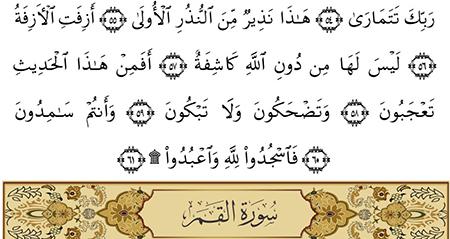 رَبِّكَ تَتَمَارَىٰ ﴿٥٤﴾ هَـٰذَا نَذِيرٌ مِّنَ النُّذُرِ الْأُولَىٰ ﴿٥٥﴾ أَزِفَتِ الْأَزِفَةُ
﴿٥٦﴾ لَيْسَ لَهَا مِن دُونِ اللَّهِ كَاشِفَةٌ ﴿٥٧﴾ أَفَمِنْ هَـٰذَا الْحَدِيثِ
تَعْجَبُونَ ﴿٥٨﴾ وَتَضْحَكُونَ وَلَا تَبْكُونَ ﴿٥٩﴾ وَأَنتُمْ سَـٰمِدُونَ
﴿٦٠﴾ فَاسْجُدُوا۟ لِلَّهِ وَاعْبُدُوا۟ ۩ ﴿٦١﴾
سُورَةُ القَمَرِ